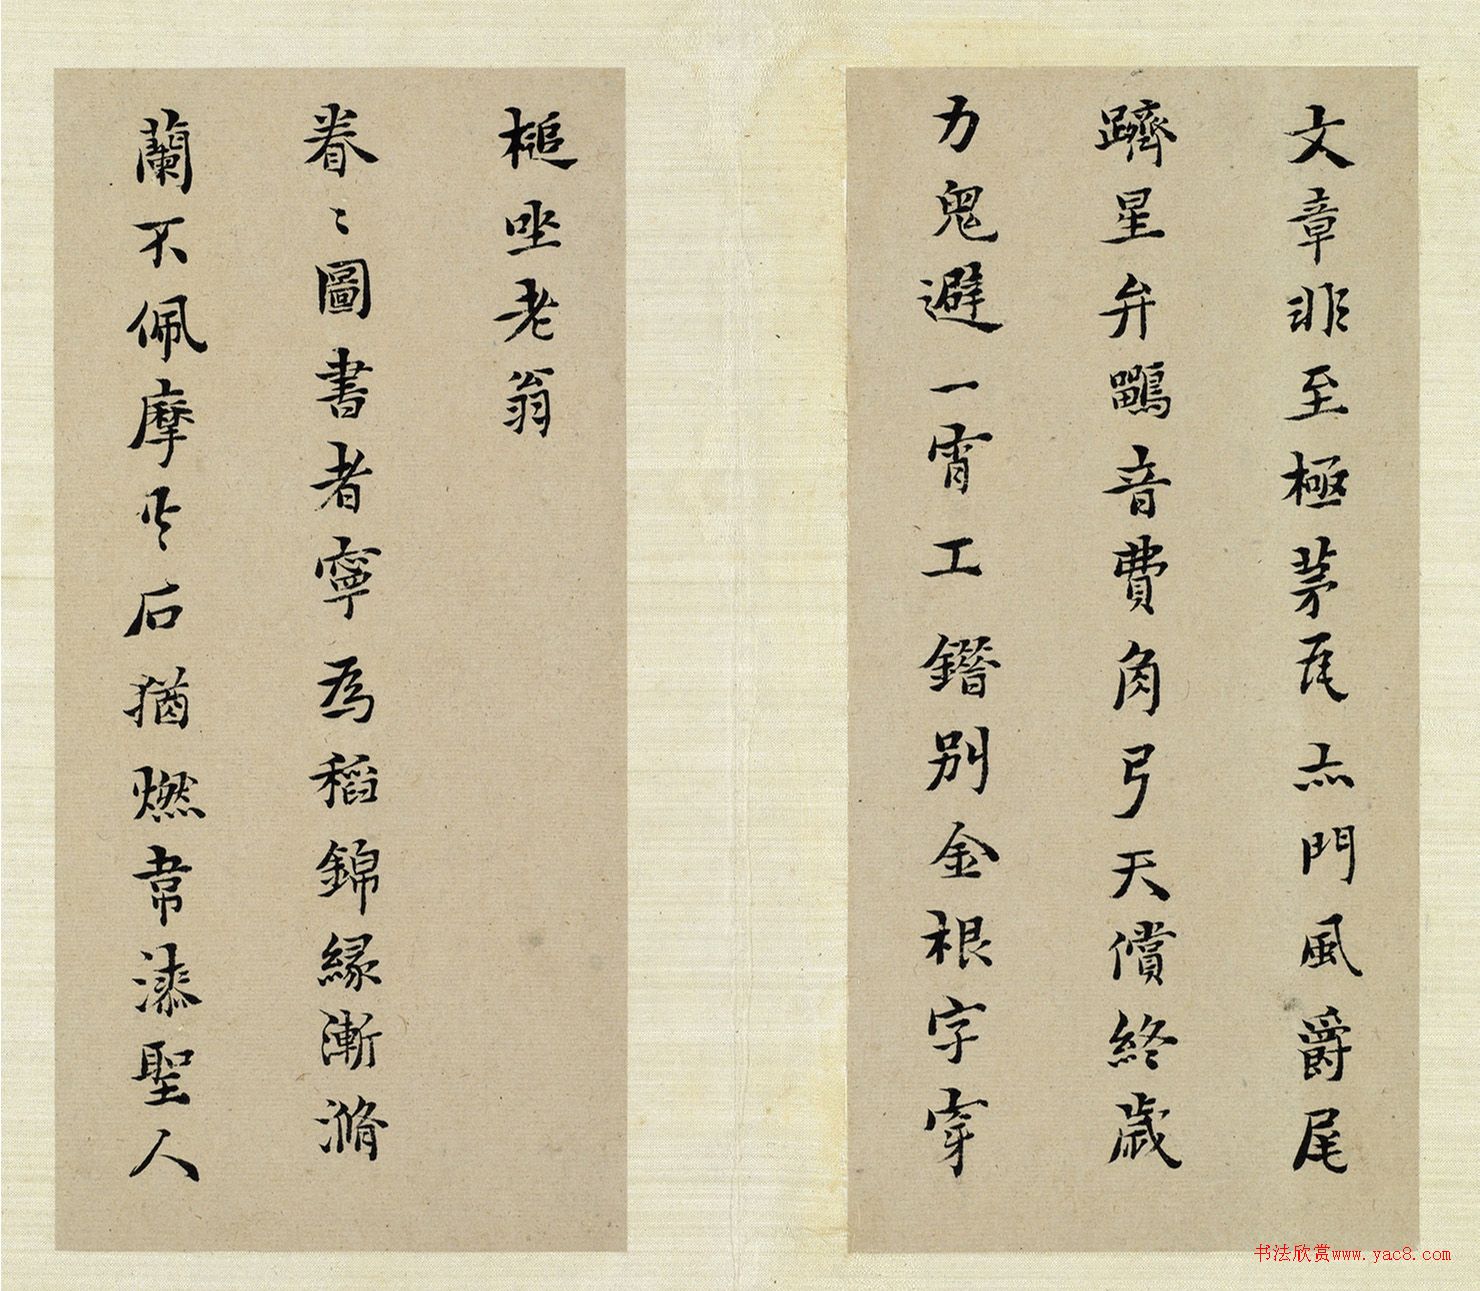 文章非至極茅瓦亦門風爵尾
躋星弁鸓音費角弓天償終歲
力鬼避一宵工鐕別金根字穿
槌坐老翁
眷〻圖書者寧為稻錦緣漸滫
蘭不佩摩兜石猶燃韋漆聖人
书法欣赏www.yac8.com